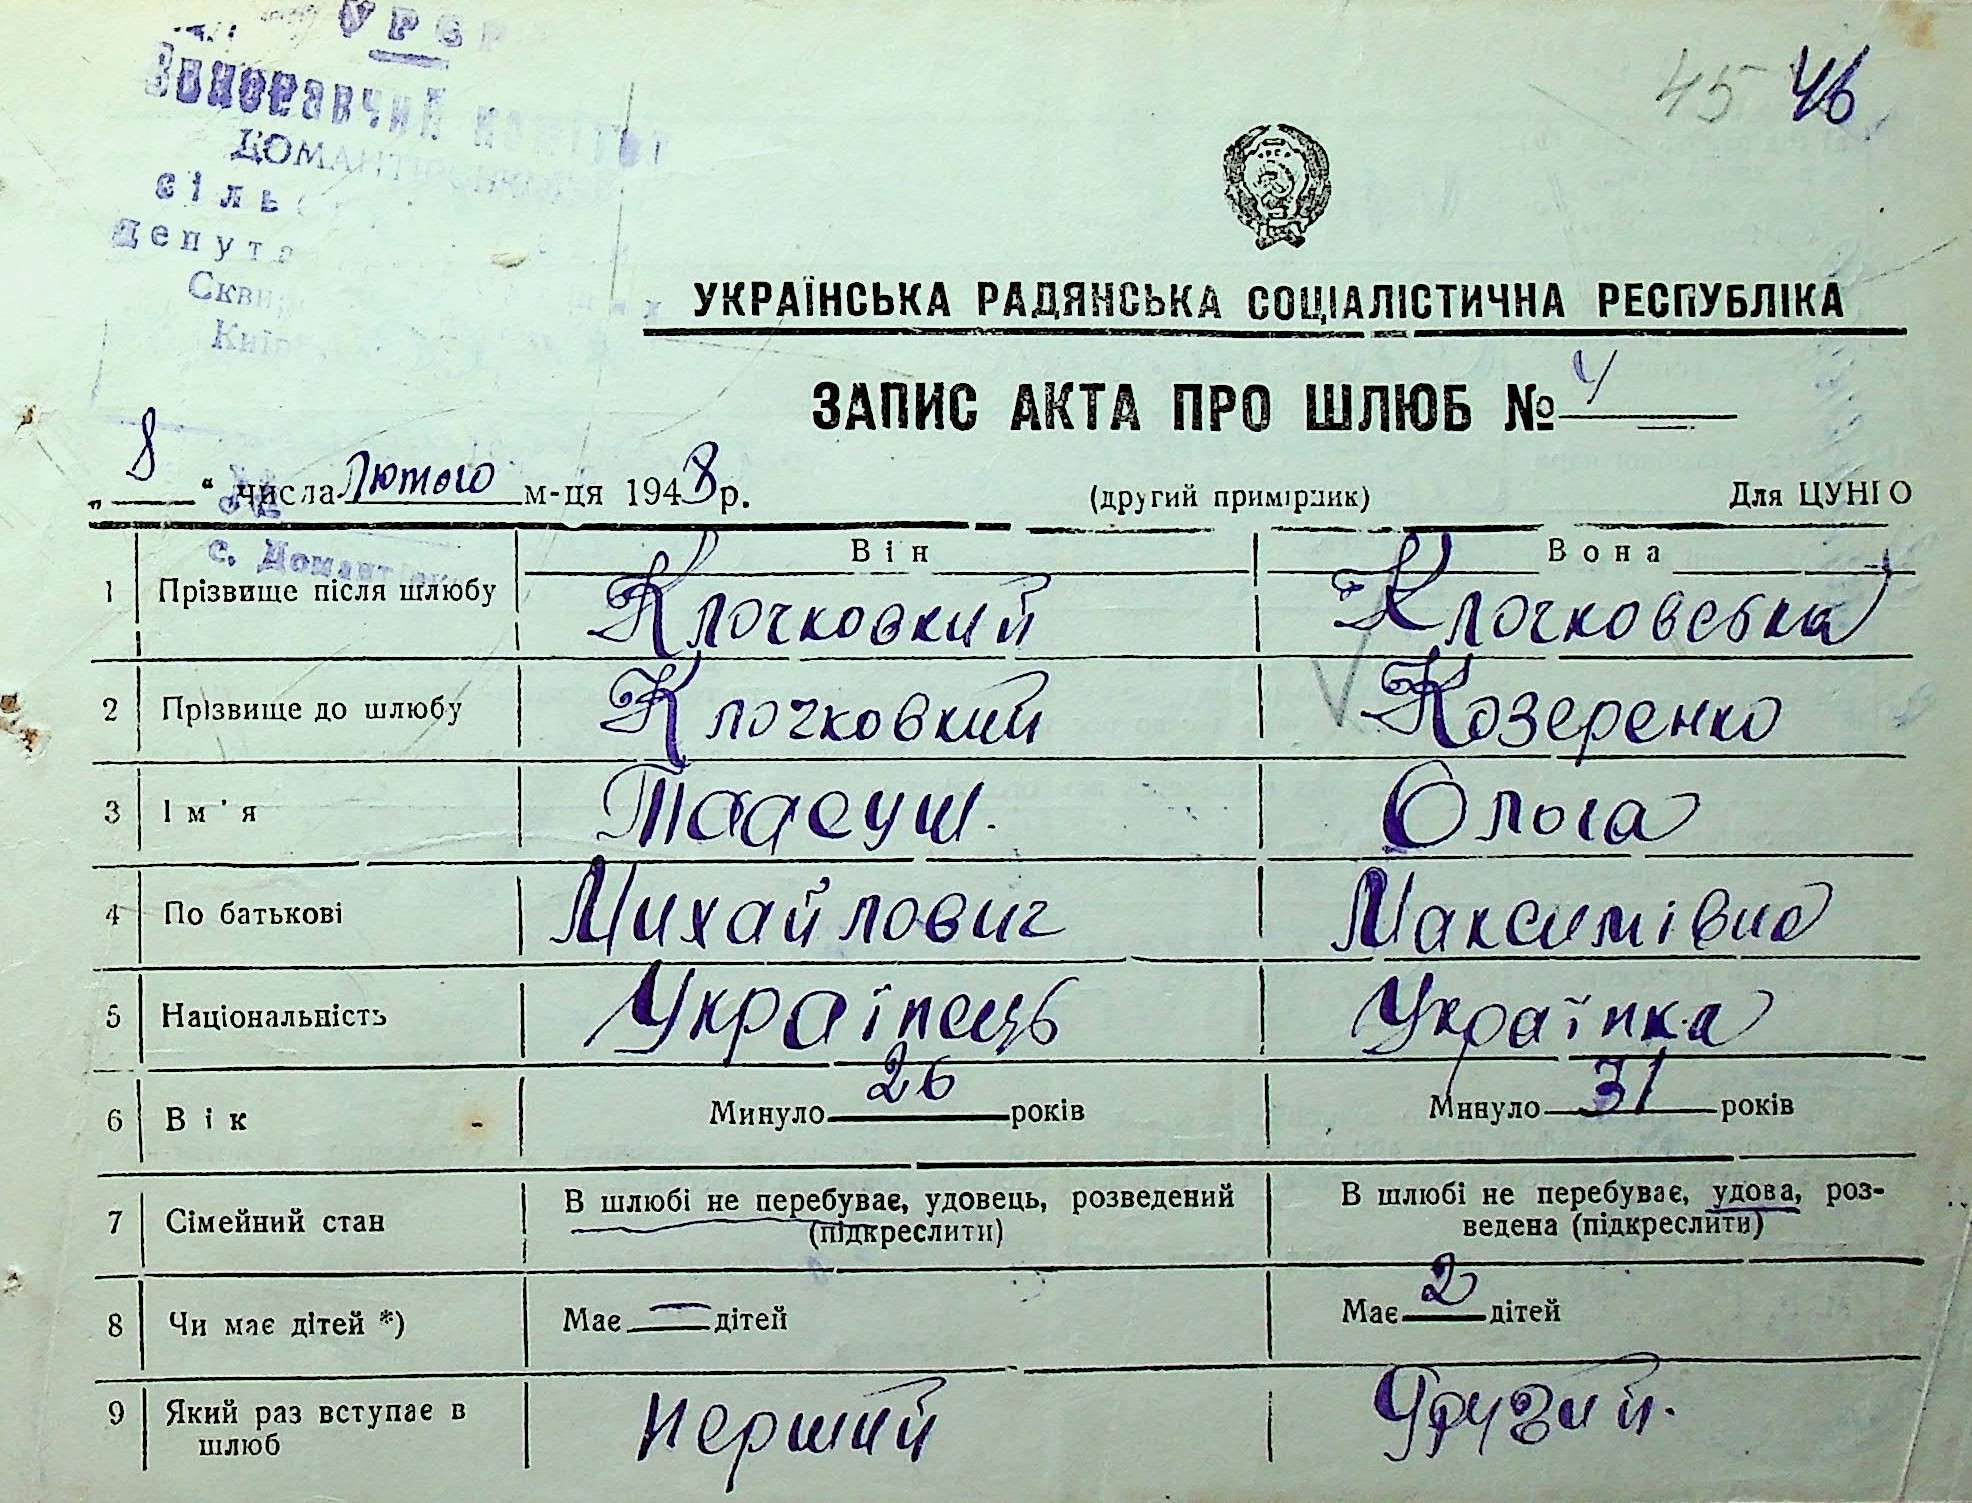 УРСР
Виконавчий комітет
ДОМАНТІВСЬКОЇ
сіль
депута
Скви
Київ
45 46
УКРАЇНСЬКА РАДЯНСЬКА СОЦІАЛІСТИЧНА РЕСПУБЛІКА
ЗАПИС АКТА ПРО ШЛЮБ № 4
„ 8 “ числа лютого м-ця 1948 р. (другий примірник) Для ЦУНГО
с. Домантівка
Він Вона
1 Прізвище після шлюбу Клочковкий Клочковська
2 Прізвище до шлюбу Клочковкий Козеренко
3 Ім'я Тадеуш. Ольга
4 По батькові Михайлович Максимівна
5 Національність Українець Українка
6 Вік Минуло 26 років Минуло 31 років
7 Сімейний стан В шлюбі не перебуває, удовець, розведений (підкреслити) В шлюбі не перебуває, удова, роз-
ведена (підкреслити)
8 Чи має дітей *) Має — дітей Має 2 дітей
9 Який раз вступає в шлюб перший Другий.